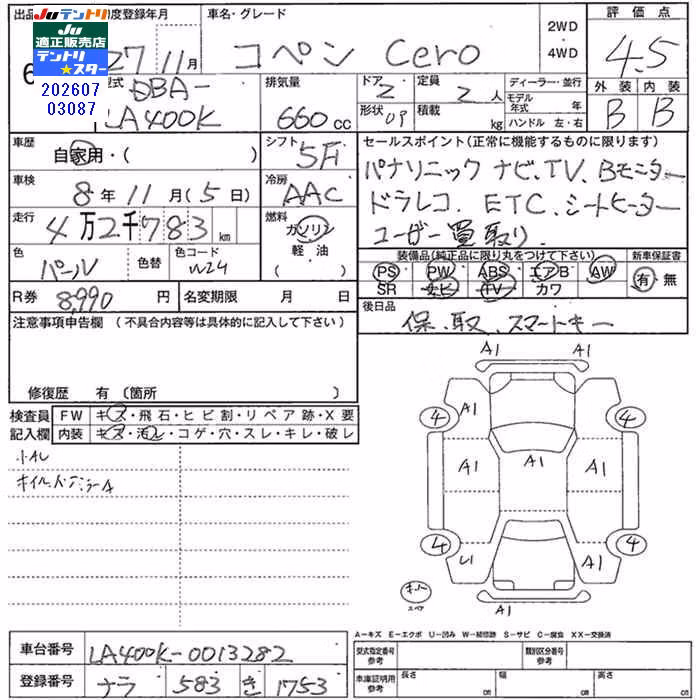 出品
JUテントリ
JU適正販売店
テントリ★スター
202607
03087
度登録年月
27 11月
車名・グレード
コペン Cero
2WD
4WD
評価点
4.5
外装 内装
B B
型式
DBA-
LA400K
排気量
660cc
ドア
2
形状 OP
定員
2人
積載
kg
ディーラー・並行
モデル年式 年
ハンドル 左・右
車歴
自家用・( )
シフト
5F
セールスポイント(正常に機能するものに限ります)
パナソニック ナビ、TV、Bモニター
ドラレコ、ETC、シートヒーター
ユーザー買取り、
車検
8年11月(5日)
冷房
AAC
走行
4万2千783km
燃料
ガソリン
軽・油
( )
色
パール
色替
色コード
W24
装備品(純正品に限り丸をつけて下さい)
PS PW ABS エアB AW
SR ナビ TV カワ
新車保証書
有・無
R券 8,990円
名変期限 月 日
後日品
保、取、スマートキー
注意事項申告欄(不具合内容等は具体的に記入して下さい)
修復歴 有〔箇所 〕
検査員
記入欄
FW キズ・飛石・ヒビ割・リペア跡・X要
内装 キズ・汚レ・コゲ・穴・スレ・キレ・破レ
小AU
A1 A1
4 A1 4
A1 A1 A1
4 U1 A1 4
スペア
A1
A-キズ E-エクボ U-凹み W-補修跡 S-サビ C-腐食 XX-交換済
車台番号 LA400K-0013282
登録番号 ナラ 583 き 1753
型式指定番号
参考
類別区分番号
参考
車庫証明用
参考
長さ cm
幅 cm
高さ cm